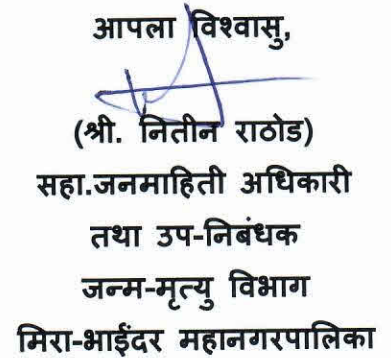 आपला विश्वासु,
(श्री. नितीन राठोड)
सहा.जनमाहिती अधिकारी
तथा उप-निबंधक
जन्म-मृत्यु विभाग
मिरा-भाईंदर महानगरपालिका